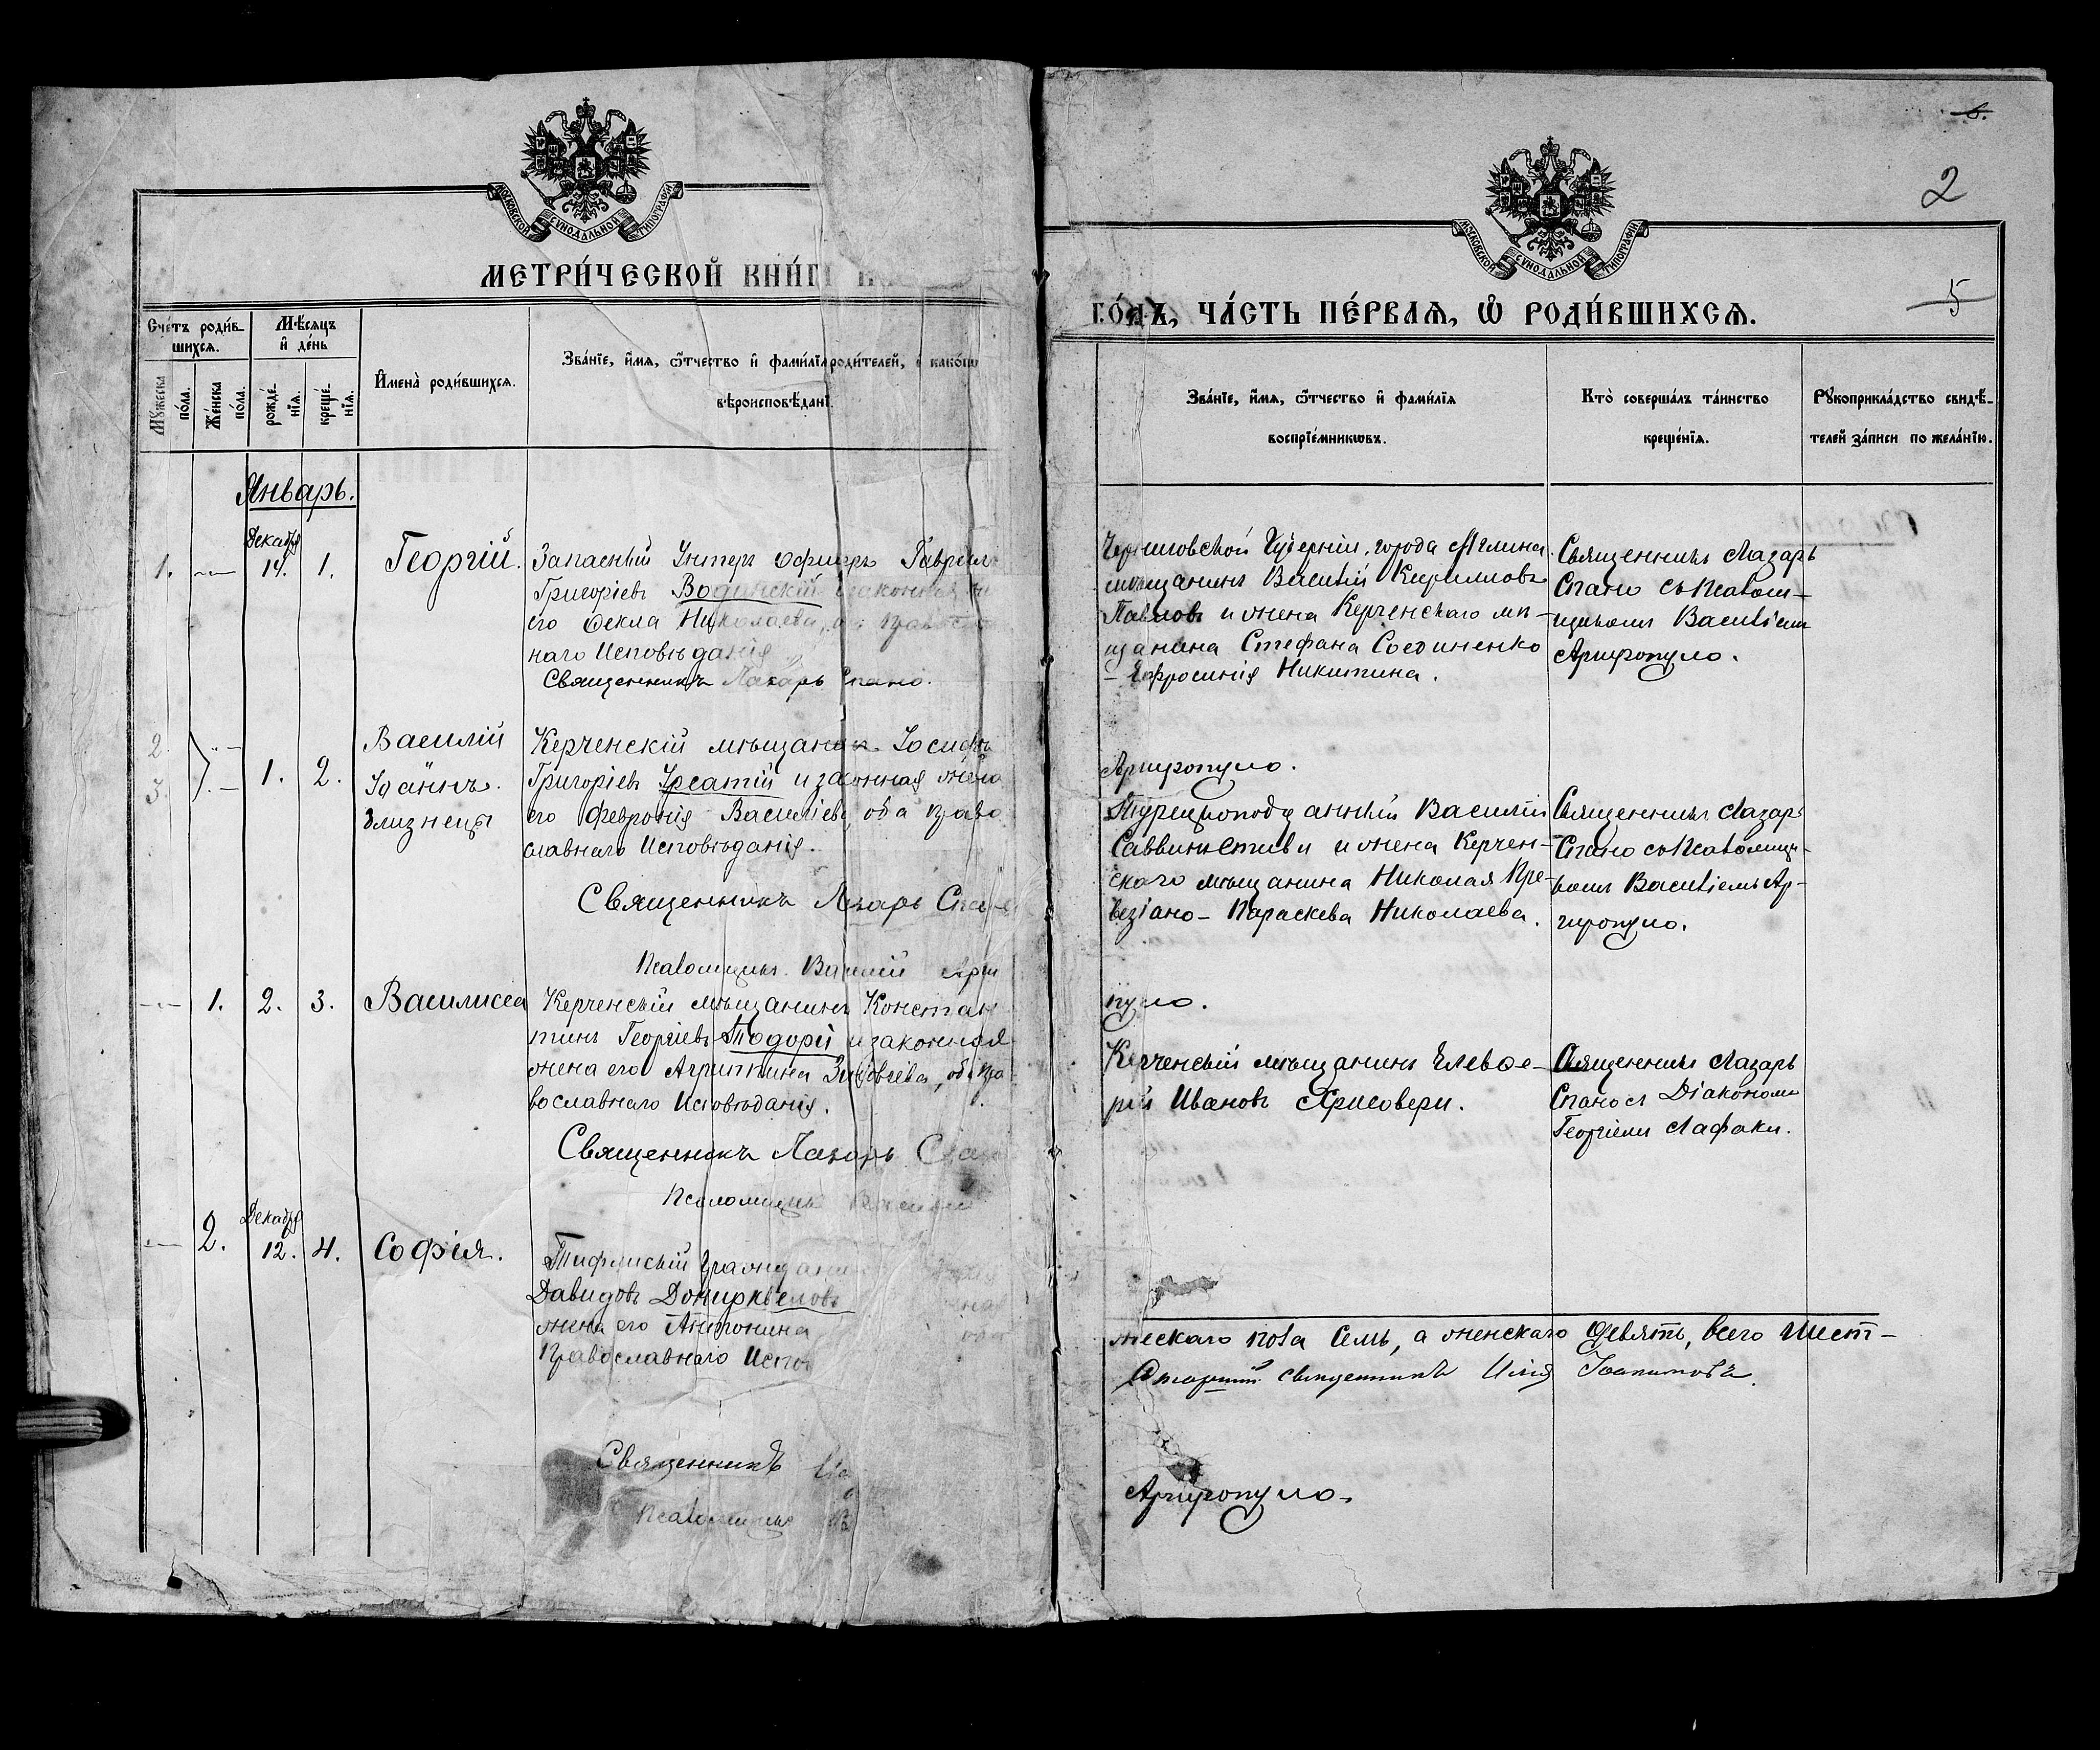 МОСКОВСКОЙ СѴНОДАЛЬНОЙ ТИПОГРАФІИ
МЕТРИ́ЧЕСКОЙ КНИ́ГИ
Сче́тъ роди́в-
шихсѧ.
Мѣ́сѧцъ
и҆ де́нь
Мꙋ́жеска
по́ла.
Же́нска
по́ла.
рожде́-
нїѧ.
креще́-
нїѧ.
И҆мена̀ роди́вшихсѧ.
Зва́нїе, и҆́мѧ, ѻ҆́тчество и҆ фами́лїѧ роди́телей, и҆ како́гѡ
вѣроисповѣ́данїѧ.
Январь.
1.
Декабря
14.
1.
Георгій.
Запасный Унтеръ Офицеръ Гаврілъ
Григоріевъ Водинскій законная
его Ѳекла Николаева,
наго Исповѣданія
Священникъ Лазарь Спано.
2.
3.
1.
2.
Василій
Іоаннъ.
близнецы
Керченскій мѣщанинъ Іосифъ
Григоріевъ и законная жена
его Февронія Васильева, оба право
славнаго Исповѣданія.
Священникъ Лазарь Спано
Псаломщикъ Василій Арги
1.
2.
3.
Василисса
Керченскій мѣщанинъ Констан
тинъ Георгіевъ Тодори и законная
жена его Агриппина Зиновіева, оба пра
вославнаго Исповѣданія.
Священникъ Лазарь Спано
Псаломщикъ Василій
2.
Декабря
12.
4.
Софія.
Тифлискій гражданин
Давидовъ
жена его Антонина
Православнаго Испов
Священникъ
Псаломщикъ В
6.
2
МОСКОВСКОЙ СѴНОДАЛЬНОЙ ТИПОГРАФІИ
5
ГО́ДЪ, ЧА́СТЬ ПЕ́РВАѦ, Ѡ҆ РОДИ́ВШИХСѦ.
Зва́нїе, и҆́мѧ, ѻ҆́тчество и҆ фами́лїѧ
воспрїе́мникѡвъ.
Кто̀ соверша́лъ та́инство
креще́нїѧ.
Рꙋкоприкла́дство свидѣ́-
телей за́писи по жела́нїю.
Черниговской Губерніи, города Мглина
мѣщанинъ Василій Кирилловъ
Павловъ и жена Керченскаго мѣ-
щанина Стефана Соединенко
- Ефросинія Никитина.
Священникъ Лазарь
Спано съ Псалом-
щикомъ Василіемъ
Аргиропуло.
Аргиропуло.
Турецкоподданный Василій
и жена Керчен-
скаго мѣщанина Николая Пре-
везіано - Параскева Николаева.
Священникъ Лазарь
Спано съ Псаломщи-
комъ Василіемъ Ар-
гиропуло.
пуло.
Керченскій мѣщанинъ Елевѳе-
рій Ивановъ Хрисовери.
Священникъ Лазарь
Спано съ Діакономъ
Георгіемъ Лафаки.
жескаго пола Семь, а женскаго Девять, всего шест-
Старшій священникъ Илія
Аргиропуло.